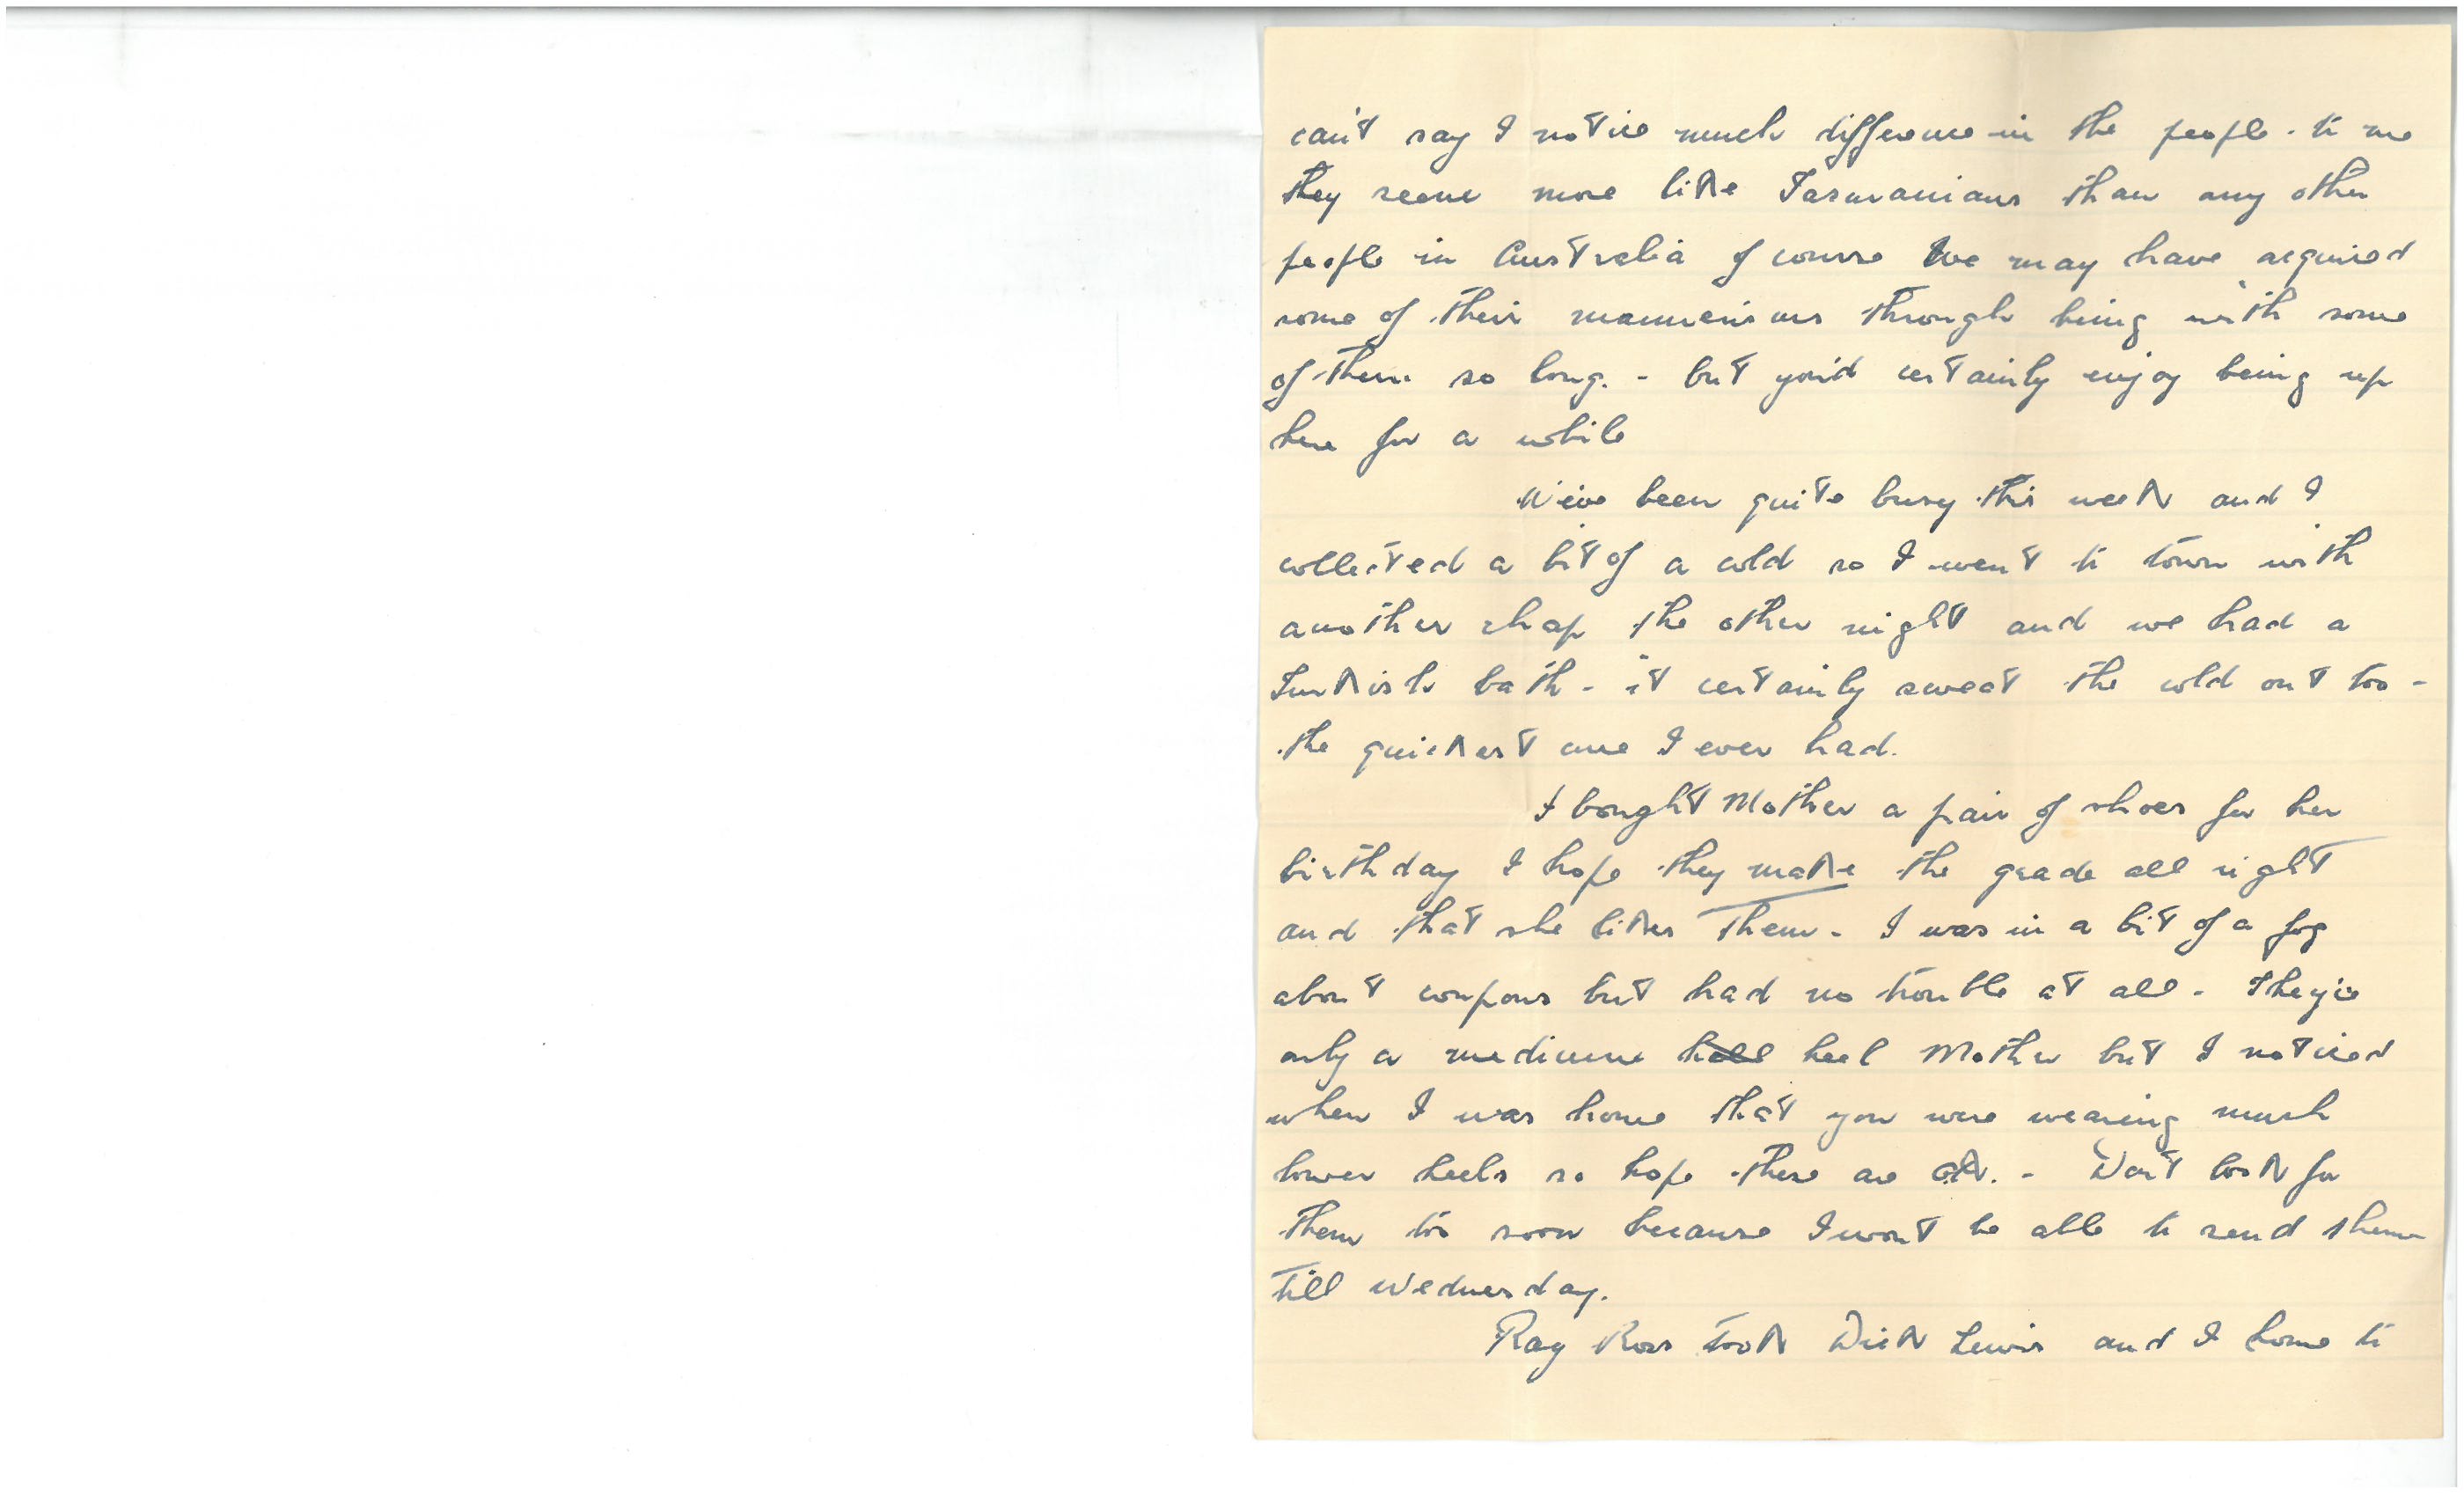 can't say I notice much difference in the people - to me
they seem more like Tasmanians than any other
people in Australia of course we may have acquired
some of their mannerisms through being with some
of them so long. - but you'd certainly enjoy being up
here for a while
We've been quite busy this week and I
collected a bit of a cold so I went to town with
another chap the other night and we had a
Turkish bath - it certainly sweat the cold out too -
the quickest cure I ever had.
I bought Mother a pair of shoes for her
birthday I hope they make the grade all right
and that she likes them - I was in a bit of a fog
about coupons but had no trouble at all - They're
only a medium heel Mother but I noticed
when I was home that you were wearing much
lower heels so hope these are OK. - Don't look for
them too soon because I won't be able to send them
till Wednesday.
Ray Ross took Dick Lewis and I home to